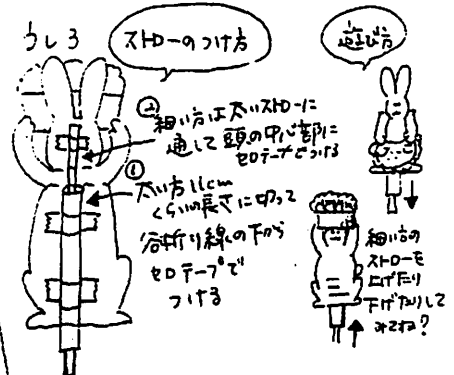 うしろ
ストローのつけ方
②
細い方は太いストローに
通して頭の中心部に
セロテープでつける
①
太い方11cm
くらいの長さに切って
谷折り線の下から
セロテープで
つける
遊び方
細い方の
ストローを
上げたり
下げたりして
みてね?